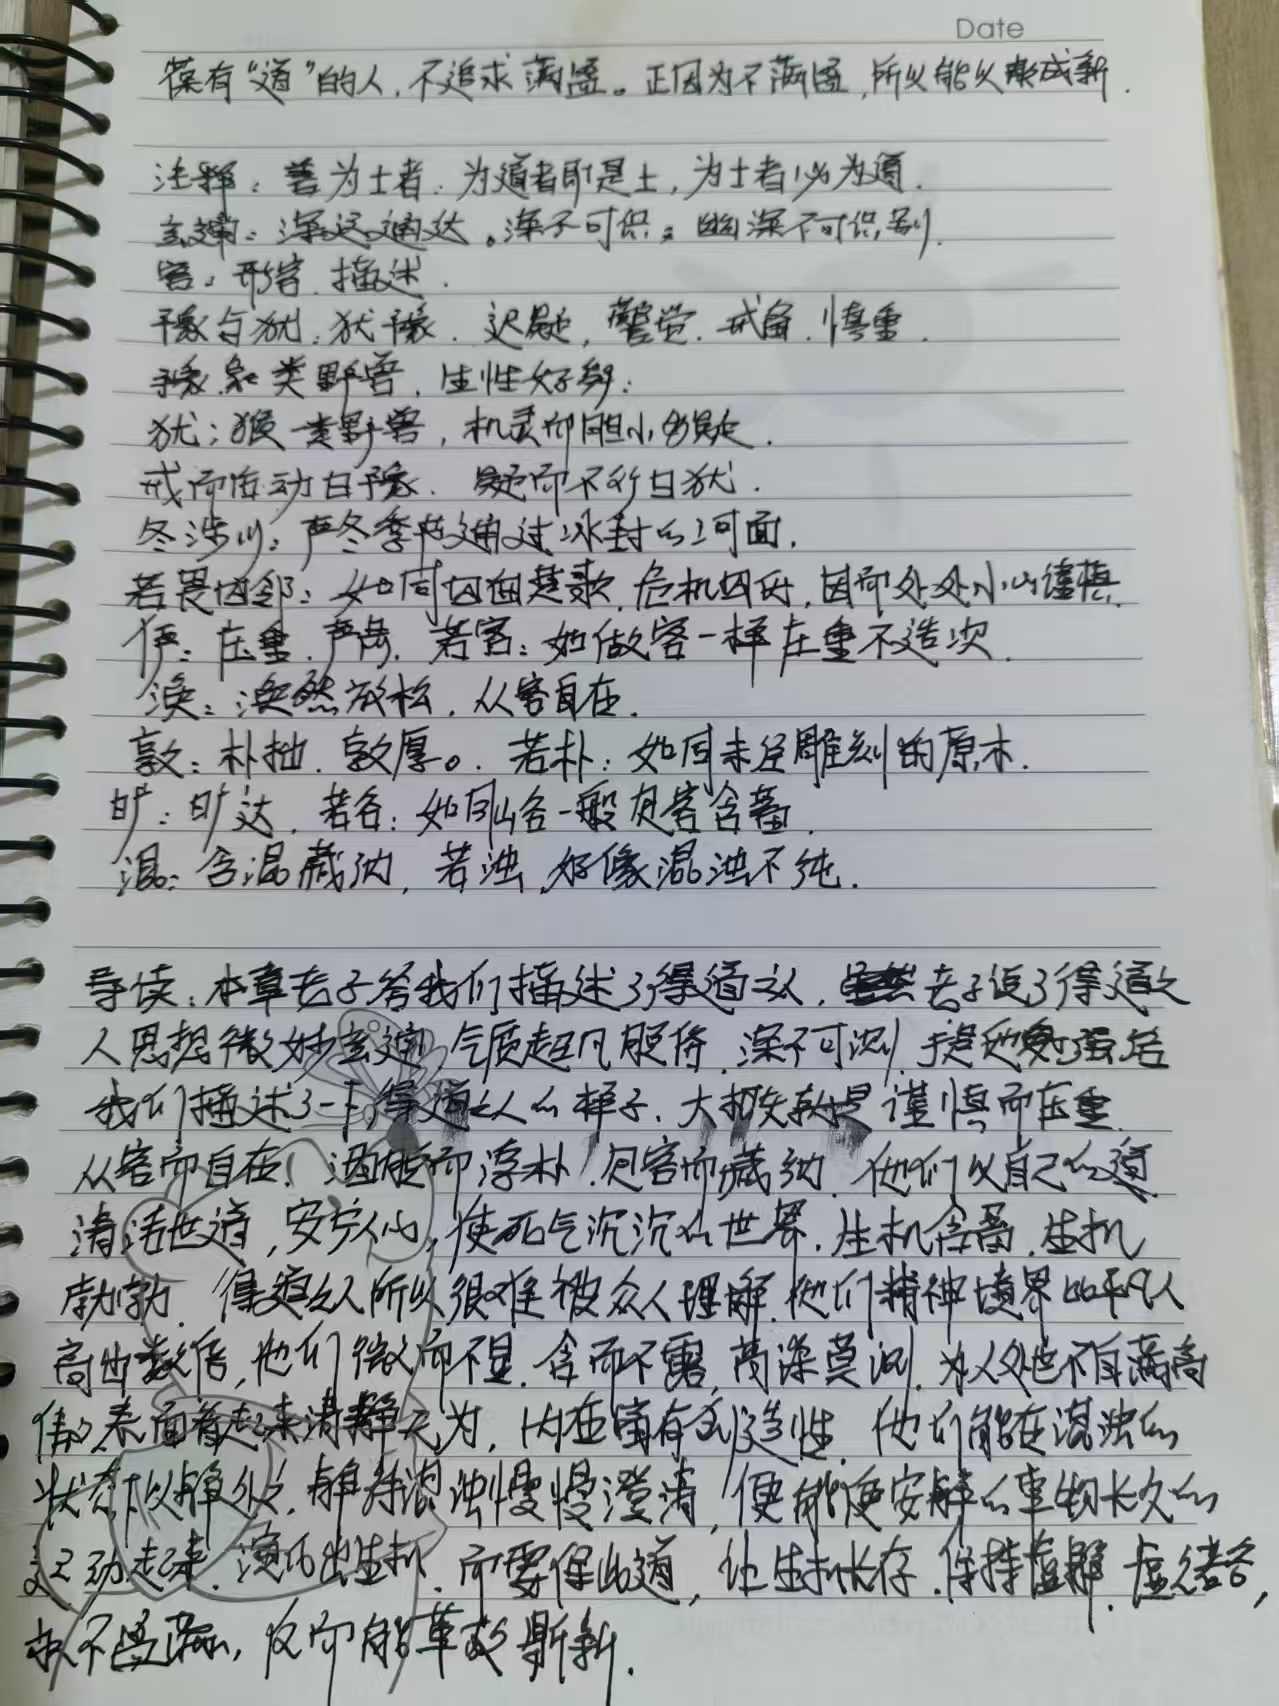 Date
葆有“道”的人，不追求满盈。正因为不满盈，所以能以敝成新．
注释：善为士者：为道者即是士，为士者必为道．
玄通：深远通达。深不可识：幽深不可识别．
容：形容．描述．
豫与犹：犹豫．迟疑，警觉．戒备．慎重．
豫：象类野兽，生性好疑；
犹：猴类野兽，机灵而胆小多疑．
戒而后动曰豫．疑而不行曰犹．
冬涉川：严冬季节通过冰封的河面．
若畏四邻：如同四面楚歌，危机四伏，因而处处小心谨慎．
俨：庄重．严肃．若客：如做客一样庄重不造次．
涣：涣然放松，从容自在．
敦：朴拙．敦厚。若朴：如同未经雕刻的原木．
旷：旷达．若谷：如同山谷一般包容含蓄．
混：含混藏纳，若浊，好像混浊不纯．
导读：本章老子给我们描述了得道之人，老子说了得道之
人思想微妙玄通，气质超凡脱俗，深不可测，于是他勉强给
我们描述了一下得道之人的样子．大概就是谨慎而庄重
从容而自在，洒脱而淳朴，包容而藏纳．他们以自己的道
清洁世道，安宁人心，使死气沉沉的世界．生机含蓄．生机
勃勃．得道之人所以很难被众人理解．他们精神境界比平凡人
高出数倍，他们微而不显．含而不露，高深莫测．为人处世不自满高
傲．表面看起来清静无为，内在富有创造性．他们能在混浊的
状态下以静处之．静待混浊慢慢澄清，便能使安静的事物长久的
运动起来．演化出生机．而要保此道，让生机长存．保持虚静．虚怀若谷，
永不盈满，反而能革故鼎新．